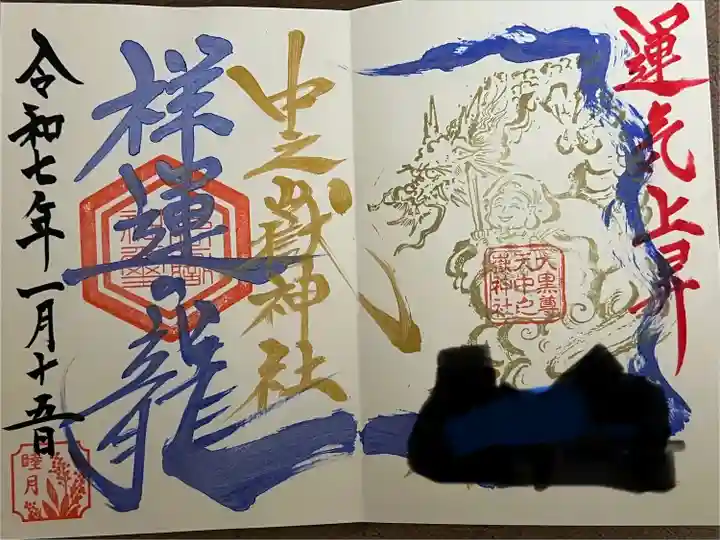 運気上昇
大黒尊
天中之
嶽神社
中之嶽神社
祥運の龍
令和七年一月十五日
睦月